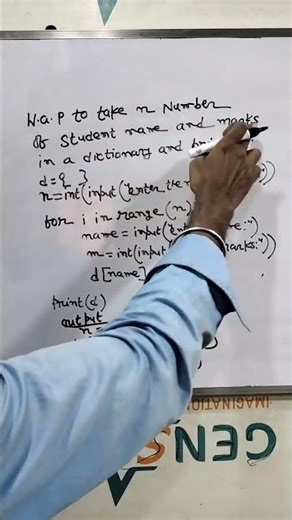 W.a.p to take n Number
of Student name and marks
in a dictionary and
d={ }
n=int(input("enter
for i in range(n)
name=input(
m=int(input( marks:"))
d[name]
print(d)
output
n=
IMAGINATION
GENS